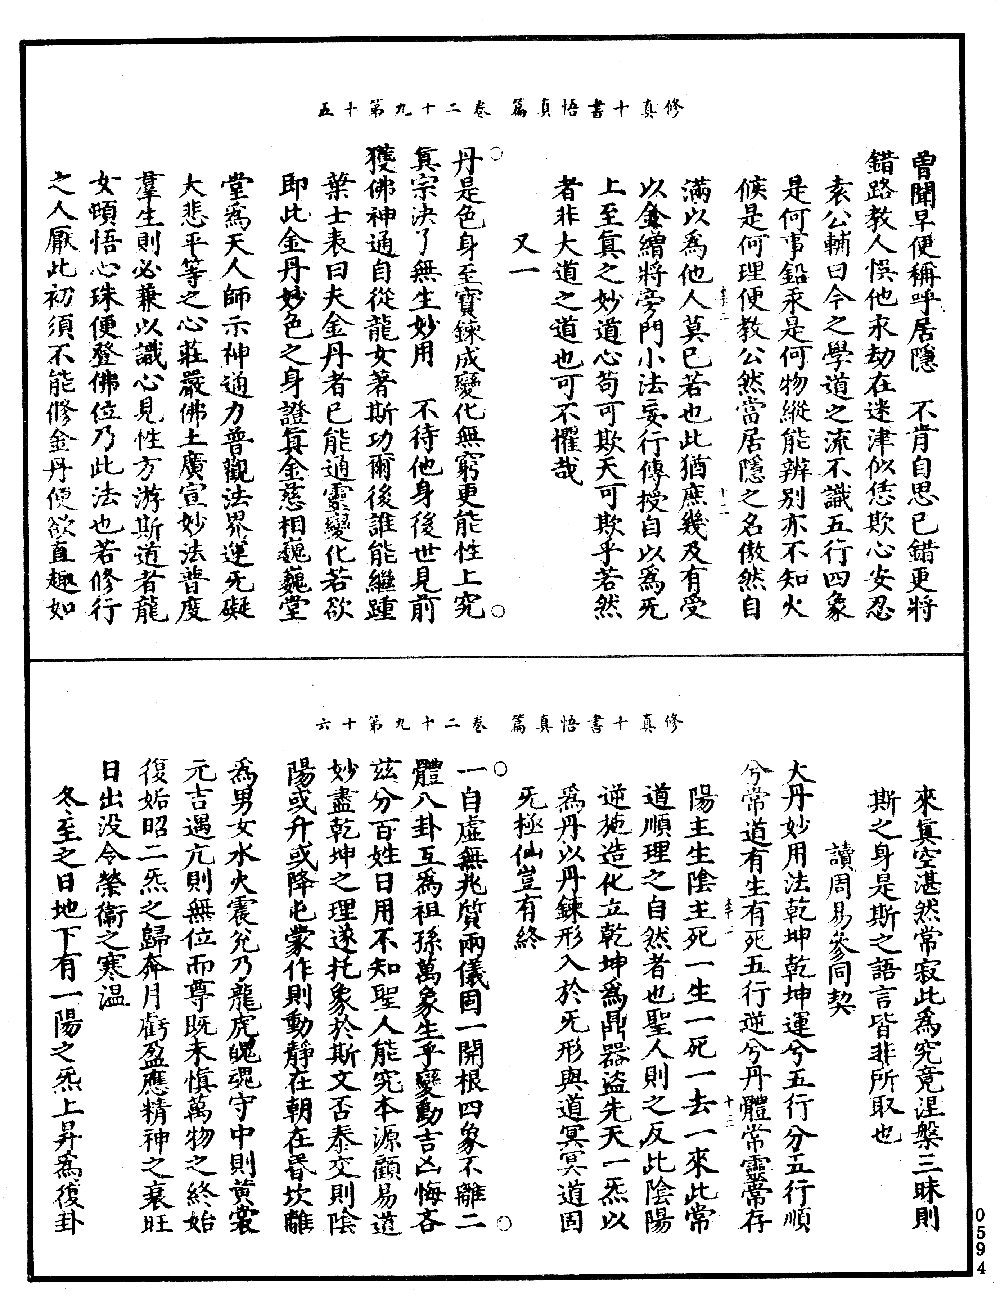 修真十書悟真篇 卷二十九第十五
曾聞早便稱呼居隱 不肯自思已錯更將
錯路教人悞他永劫在迷津似恁欺心安忍
袁公輔曰今之學道之流不識五行四象
是何事鉛汞是何物縱能辨别亦不知火
候是何理便教公然當居隱之名傲然自
滿以為他人莫已若也此猶庶幾及有受
以金繒將旁門小法妄行傳授自以為旡
上至真之妙道心苟可欺天可欺乎若然
者非大道之道也可不懼哉
又一
丹是色身至寶鍊成變化無窮更能性上究
真宗決了無生妙用 不待他身後世見前
獲佛神通自從龍女著斯功爾後誰能繼踵
葉士表曰夫金丹者已能通靈變化若欲
即此金丹妙色之身證真金慈相巍巍堂
堂為天人師示神通力普觀法界運旡礙
大悲平等之心莊嚴佛土廣宣妙法普度
羣生則必兼以識心見性方游斯道者龍
女頓悟心珠便登佛位乃此法也若修行
之人厭此初須不能修金丹便欲直趣如
修真十書悟真篇 卷二十九第十六
來真空湛然常寂此為究竟涅槃三昧則
斯之身是斯之語言皆非所取也
讀周易參同契
大丹妙用法乾坤乾坤運兮五行分五行順
兮常道有生有死五行逆兮丹體常靈常存
陽主生陰主死一生一死一去一來此常
道順理之自然者也聖人則之反此陰陽
逆施造化立乾坤為鼎器盜先天一炁以
為丹以丹鍊形入於旡形與道冥冥道固
旡極仙豈有終
一自虛無兆質兩儀因一開根四象不離二
體八卦互為祖孫萬象生乎變動吉凶悔吝
茲分百姓日用不知聖人能究本源顧易道
妙盡乾坤之理遂托象於斯文否泰交則陰
陽或升或降屯蒙作則動靜在朝在昏坎離
為男女水火震兌乃龍虎魄魂守中則黃裳
元吉遇亢則無位而尊既未慎萬物之終始
復姤昭二炁之歸奔月虧盈應精神之衰旺
日出没令榮衛之寒溫
冬至之日地下有一陽之炁上昇為復卦
0594